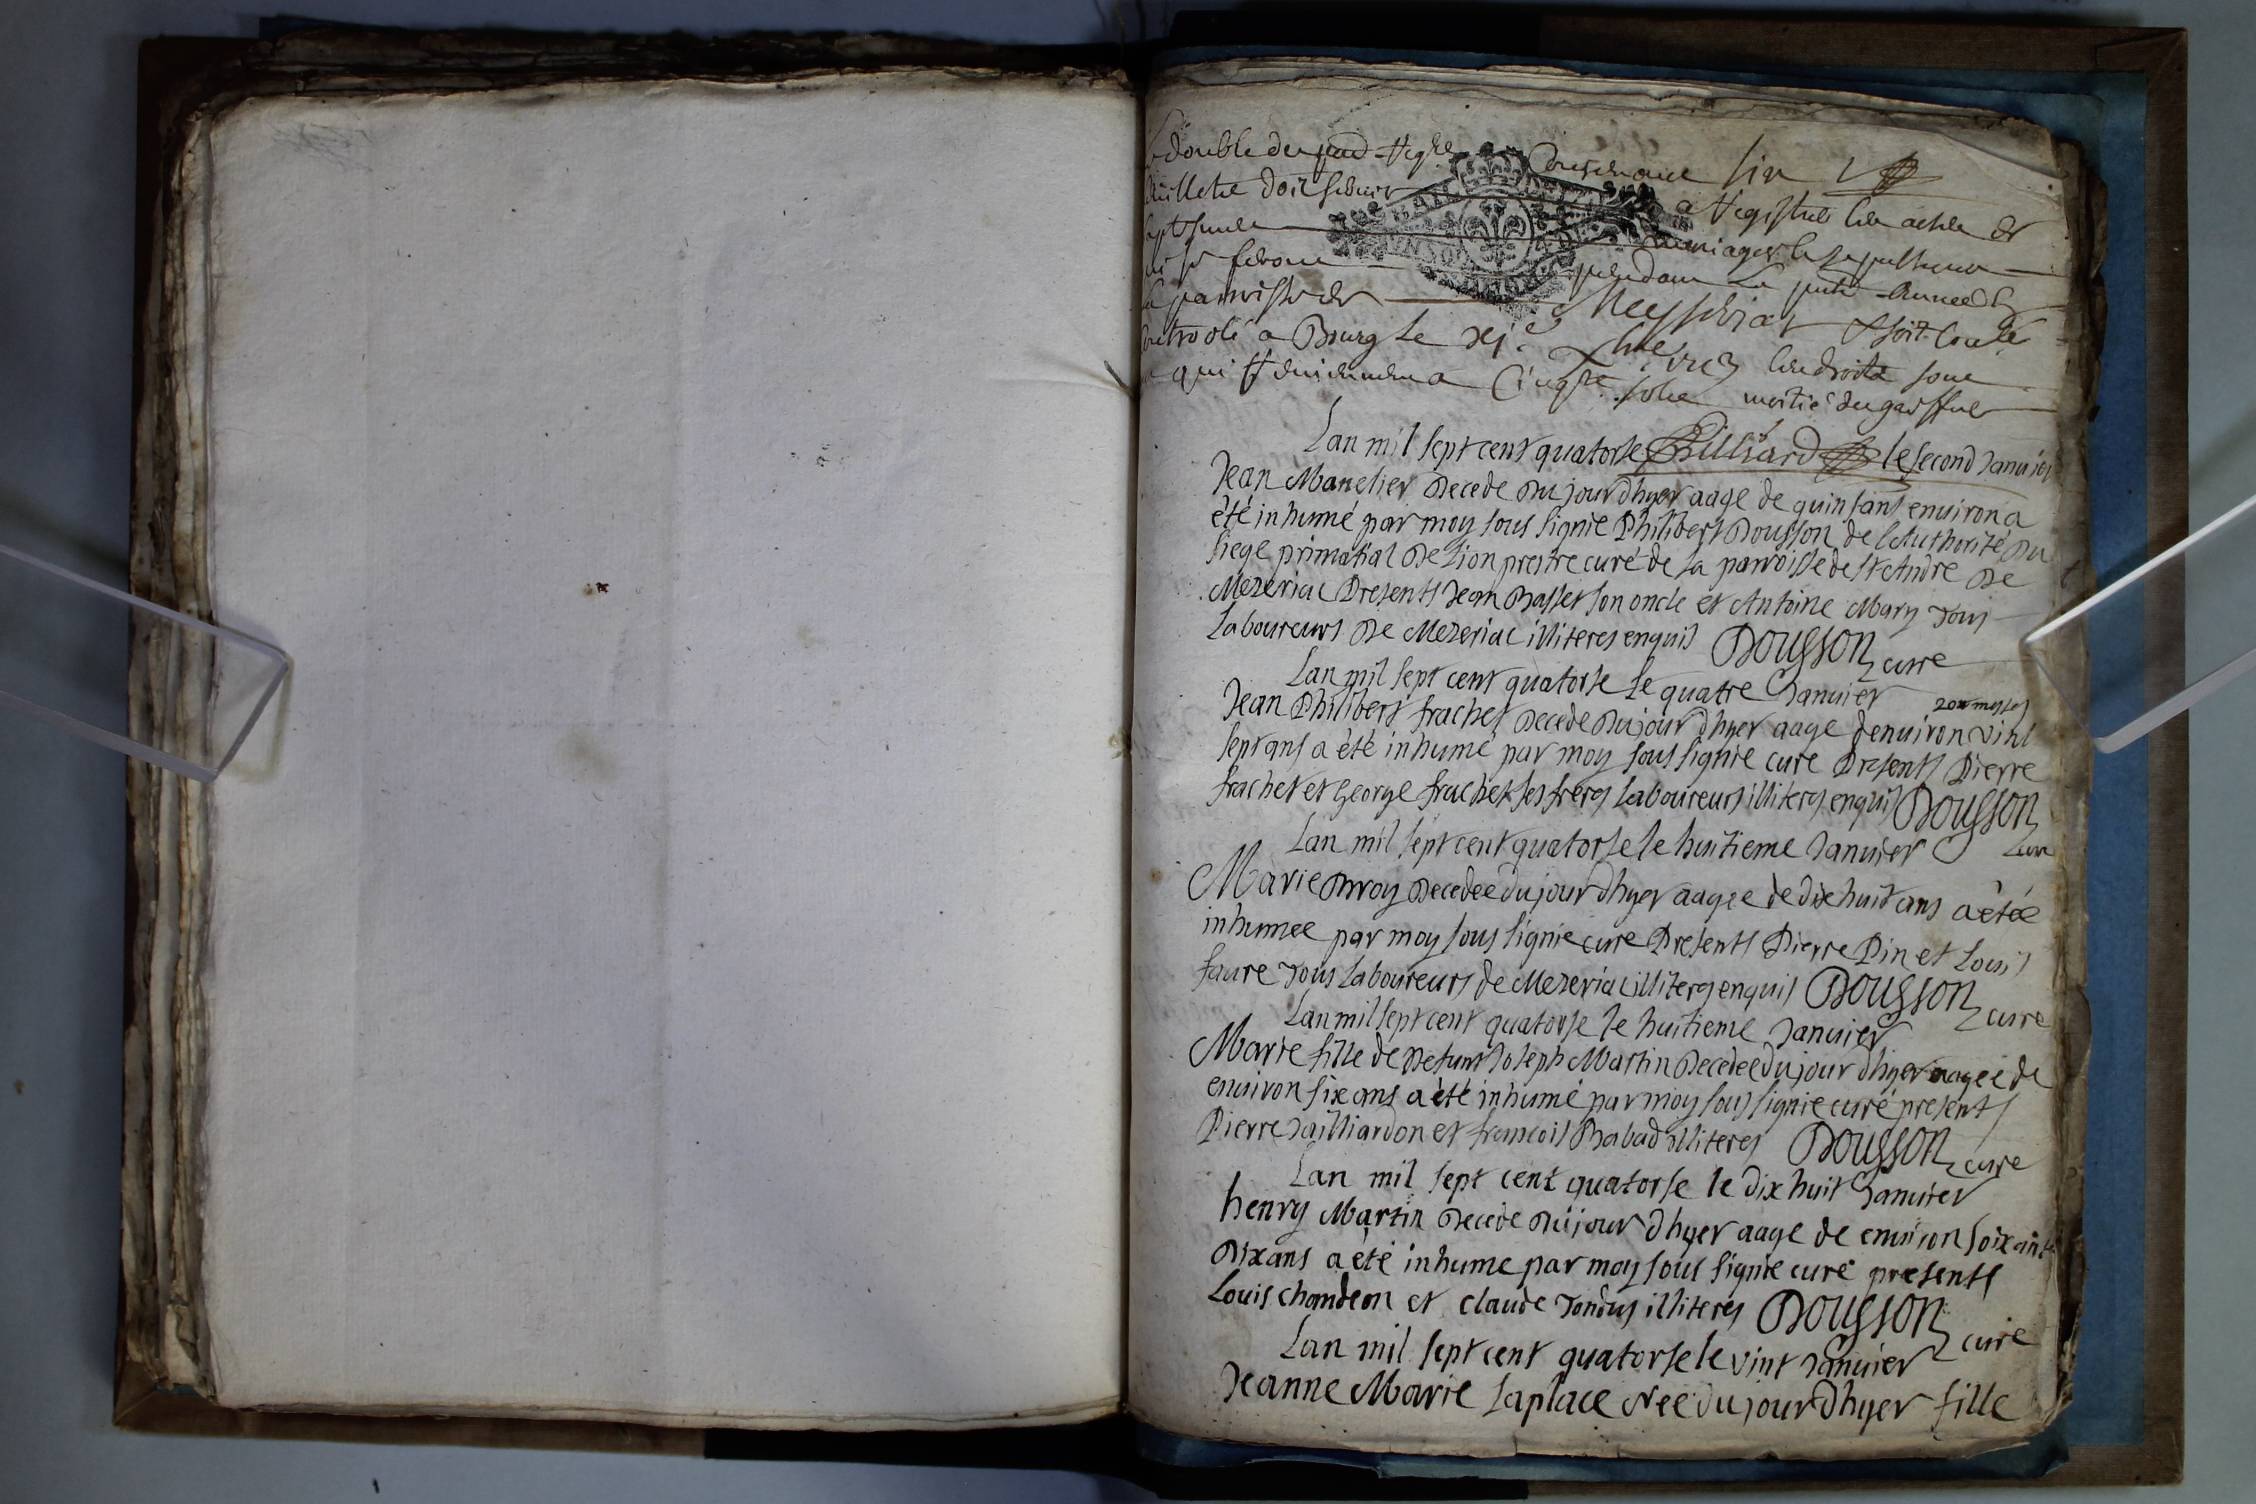 double du Regre contenant six
feuillets doit servir a Registrer les actes de
Baptesmes mariages & sepultures
qui se feront pendant la pnte annee En
la parroisse de Meyseriat & soit controlé
controlé a Bourg le xje les droits sont
qui Cinq sols moitié du gros
Lan mil sept cent quatorse Billiard le second Janvier
Jean Manelier Decede Du jour dhyer aage de quinsans environ a
été inhumé par moy sous signie Philibert Dousson de lAuthorité Du
siege primatial De Lion prestre curé de la parroisse de St Andre De
Mezeriac Presents Jean Basset son oncle et Antoine Mary Tous
Laboureurs De Mezeriac illiteres enquis Dousson curé
Lan mil sept cent quatorse le quatre Janvier
Jean Philibert frachet Decede Dujour dhyer aage denviron vint
sept ans a été inhumé par moy sous signie curé Presents Pierre
frachet et George frachet ses freres Laboureurs illiteres enquis Dousson
Lan mil sept cent quatorse le huitieme Janvier curé
Marie Decedee Dujour dhyer aagee de dix huit ans a etée
inhumee par moy sous signie curé Presents Pierre Pin et Louis
faure Tous Laboureurs de Mezeriac illiteres enquis Dousson curé
Lan mil sept cent quatorse le huitieme Janvier
Marie fille de Defunt Joseph Martin Decedee Dujour dhyer aageé de
environ six ans a été inhumé par moy sous signie curé presents
Pierre Jailliardon et francois Rabad illiteres Dousson curé
Lan mil sept cent quatorse le dix huit Janvier
henry Martin Decede Dujour dhyer aage de environ soixante
Dix ans a été inhume par moy sous signie curé presents
Louis chandeon et claude Tondus illiteres Dousson curé
Lan mil sept cent quatorse le vint Janvier
Jeanne Marie Laplace Nee dujour dhyer fille